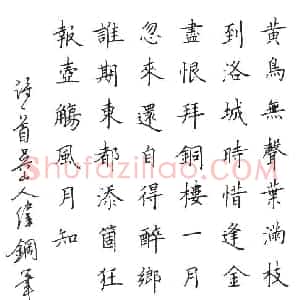 黃鳥無聲葉滿枝
到洛城時惜逢金
盡恨拜銅樓一月
忽來還自得醉鄉
誰期東都添箇狂
報壺觴風月知
詩一首山人鋼筆
Shufaziliao.com